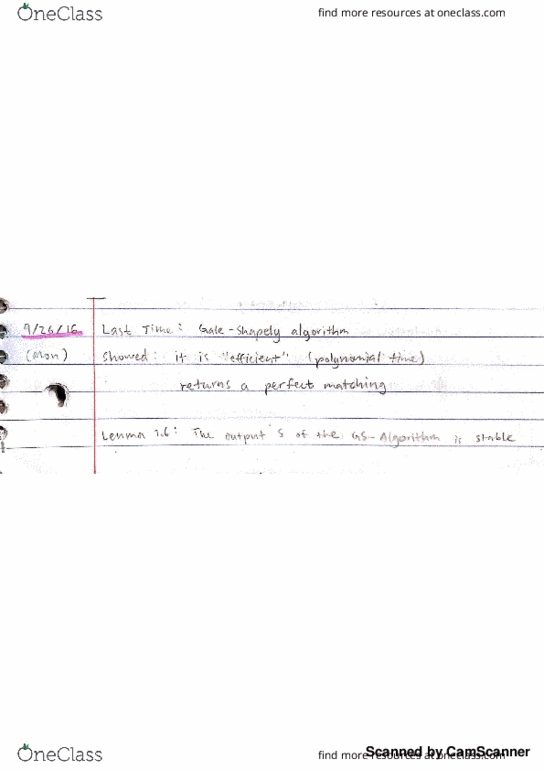 OneClass find more resources at oneclass.com
9/26/16 Last Time: Gale-Shapely algorithm
(Mon) Showed: it is "efficient" (polynomial time)
returns a perfect matching
Lemma 1.6: The output S of the GS-Algorithm is stable
OneClass find more resources at oneclass.com
Scanned by CamScanner